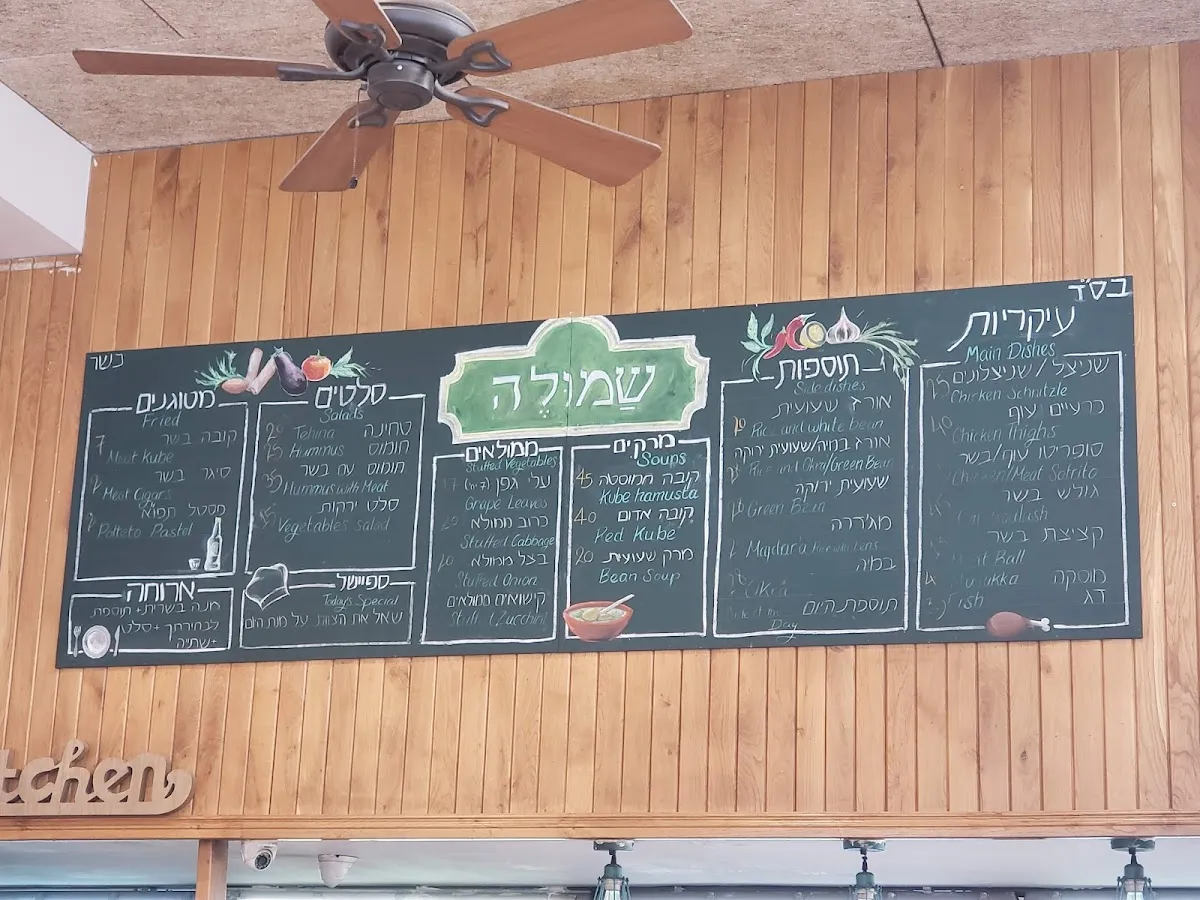 בס"ד
עיקריות
Main Dishes
שניצל / שניצלונים
Chicken Schnitzle
כרעיים עוף
Chicken Thighs
סופריטו עוף/בשר
Chicken/Meat Sofrito
גולש בשר
קציצת בשר
Meat Ball
מוסקה
דג
Fish
תוספות
Side dishes
אורז שעועית
Rice and white bean
אורז במיה/שעועית ירוקה
Rice and Okra/Green Bean
שעועית ירוקה
Green Bean
מג'דרה
Majdara
במיה
Okra
תוספת היום
Day
שמולה
מרקים
Soups
קובה חמוסטה 45
Kube hamusta
קובה אדום 40
Red Kube
מרק שעועית 20
Bean Soup
ממולאים
Stuffed Vegetables
עלי גפן
Grape Leaves
כרוב ממולא
Stuffed Cabbage
בצל ממולא
Stuffed Onion
קישואים ממולאים
Zucchini
סלטים
Salads
טחינה
Tehina
חומוס
Hummus
חומוס עם בשר
Hummus with Meat
סלט ירקות
Vegetables salad
ספיישל
Today's Special
שאל את הצוות על מנת היום
כשר
מטוגנים
Fried
קובה בשר 7
Meat Kube
סיגר בשר
Meat Cigars
פסטל תפוא
Potteto Pastel
ארוחה
מנה בשרית + תוספת
לבחירתך + סלט
+ שתייה
tchen